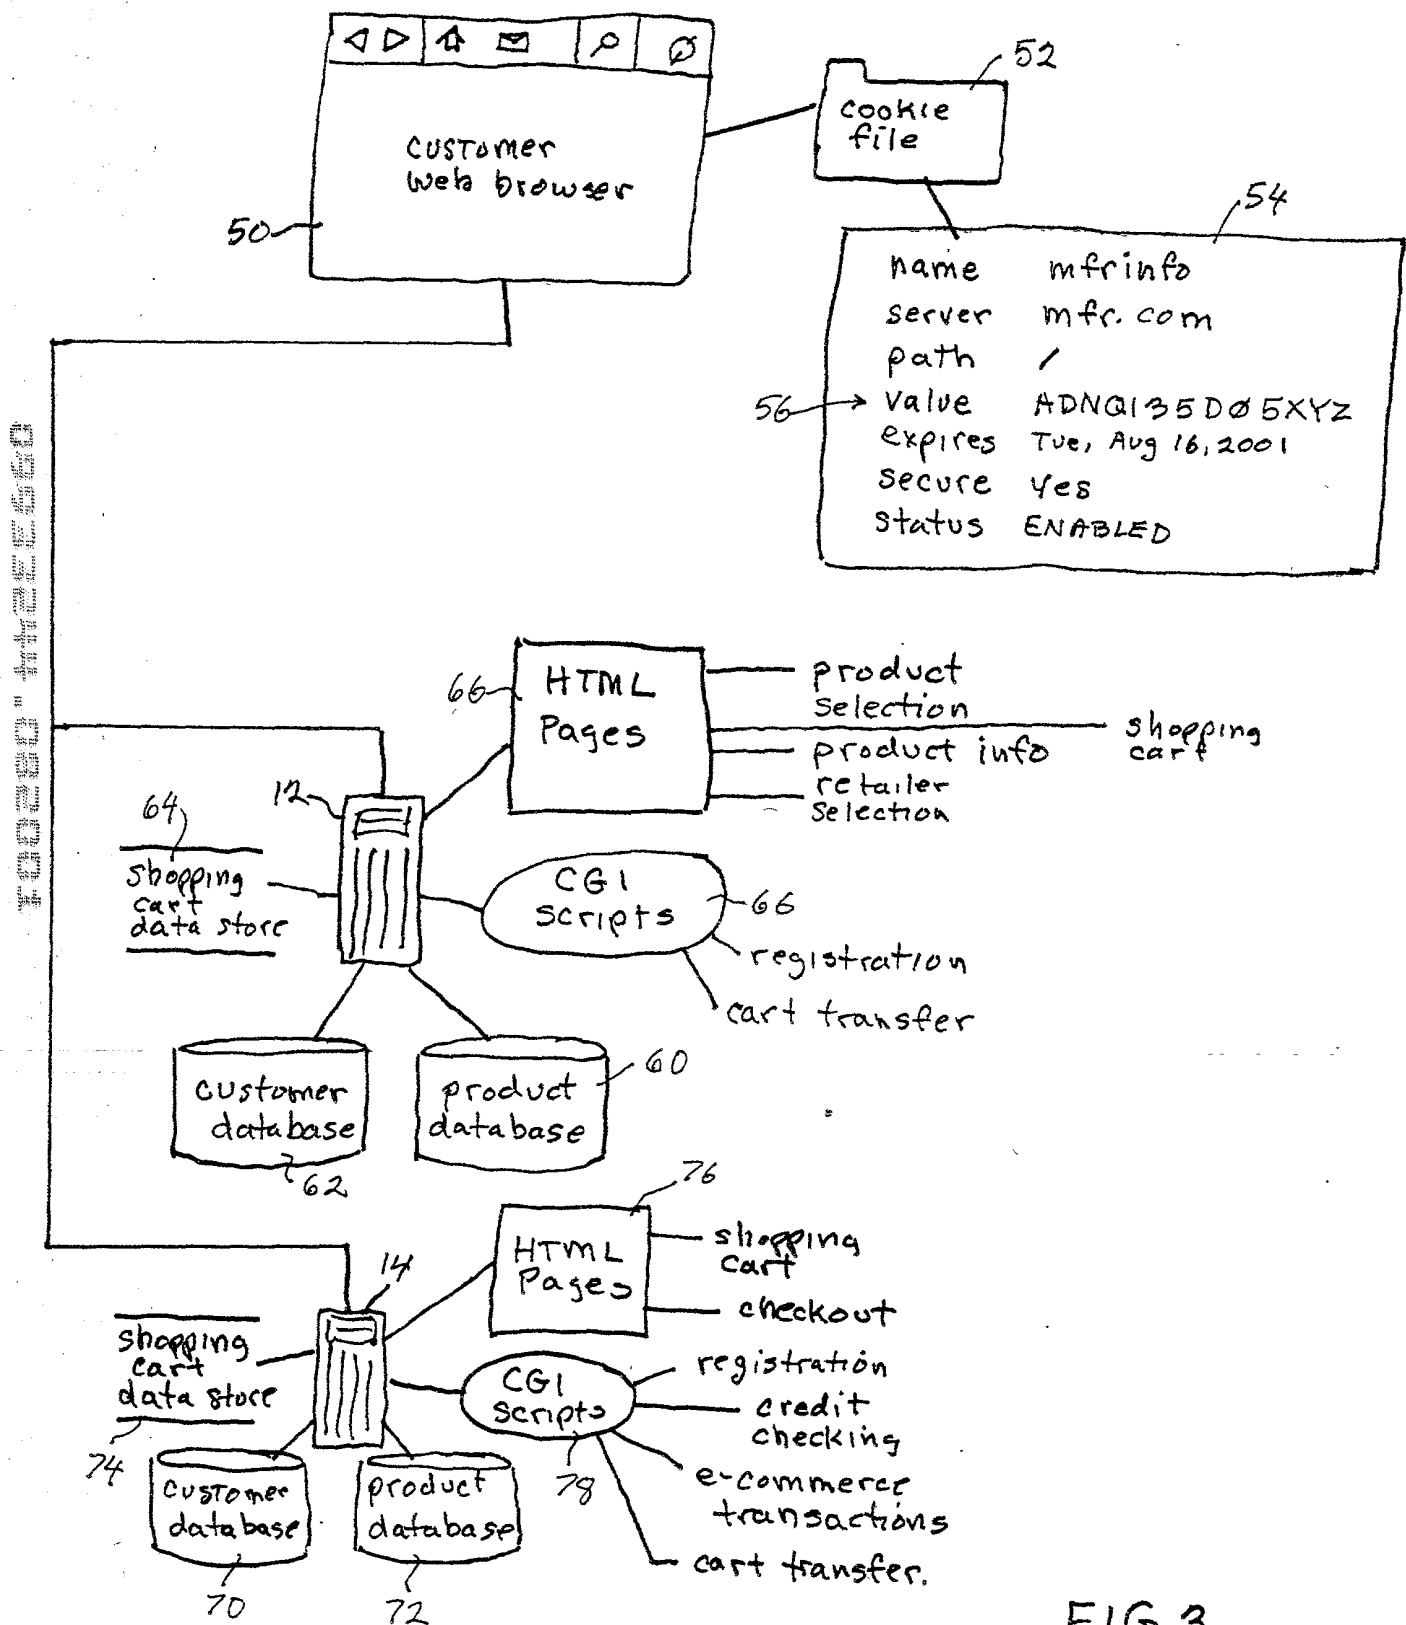 52
cookie
file
customer
web browser
50
54
name mfrinfo
server mfr.com
path /
56 value ADNQ135DØ5XYZ
expires Tue, Aug 16, 2001
secure Yes
status ENABLED
09933244.082001
66 HTML
Pages
product
selection
shopping
cart
product info
retailer
selection
12
64
shopping
cart
data store
CGI
scripts
66
registration
cart transfer
customer
database
62
product
database
60
76
HTML
Pages
shopping
cart
checkout
14
shopping
cart
data store
74
CGI
scripts
78
registration
credit
checking
e-commerce
transactions
cart transfer.
customer
database
70
product
database
72
FIG 3